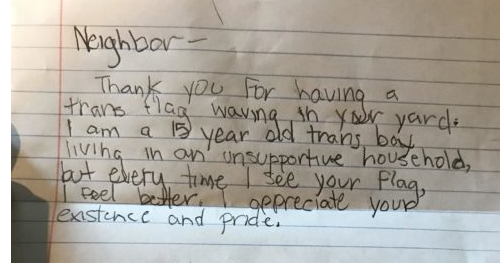 Neighbor—
Thank you For having a
trans flag waving in your yard.
I am a 15 year old trans boy
living in an unsupportive household,
but every time I see your flag,
I feel better. I appreciate your
existence and pride.